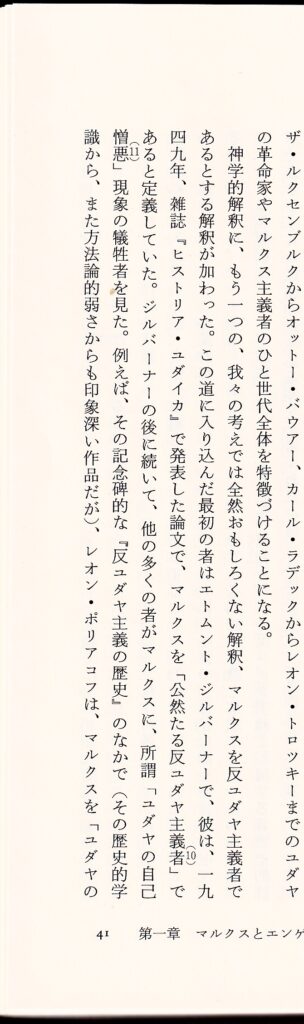 ザ・ルクセンブルクからオットー・バウアー、カール・ラデックからレオン・トロツキーまでのユダヤ
の革命家やマルクス主義者のひと世代全体を特徴づけることになる。
神学的解釈に、もう一つの、我々の考えでは全然おもしろくない解釈、マルクスを反ユダヤ主義者で
あるとする解釈が加わった。この道に入り込んだ最初の者はエトムント・ジルバーナーで、彼は、一九
四九年、雑誌『ヒストリア・ユダイカ』で発表した論文で、マルクスを「公然たる反ユダヤ主義者」(10)で
あると定義していた。ジルバーナーの後に続いて、他の多くの者がマルクスに、所謂「ユダヤの自己
憎悪」(11)現象の犠牲者を見た。例えば、その記念碑的な『反ユダヤ主義の歴史』のなかで（その歴史的学
識から、また方法論的弱さからも印象深い作品だが）、レオン・ポリアコフは、マルクスを「ユダヤの
41 第一章 マルクスとエンゲ